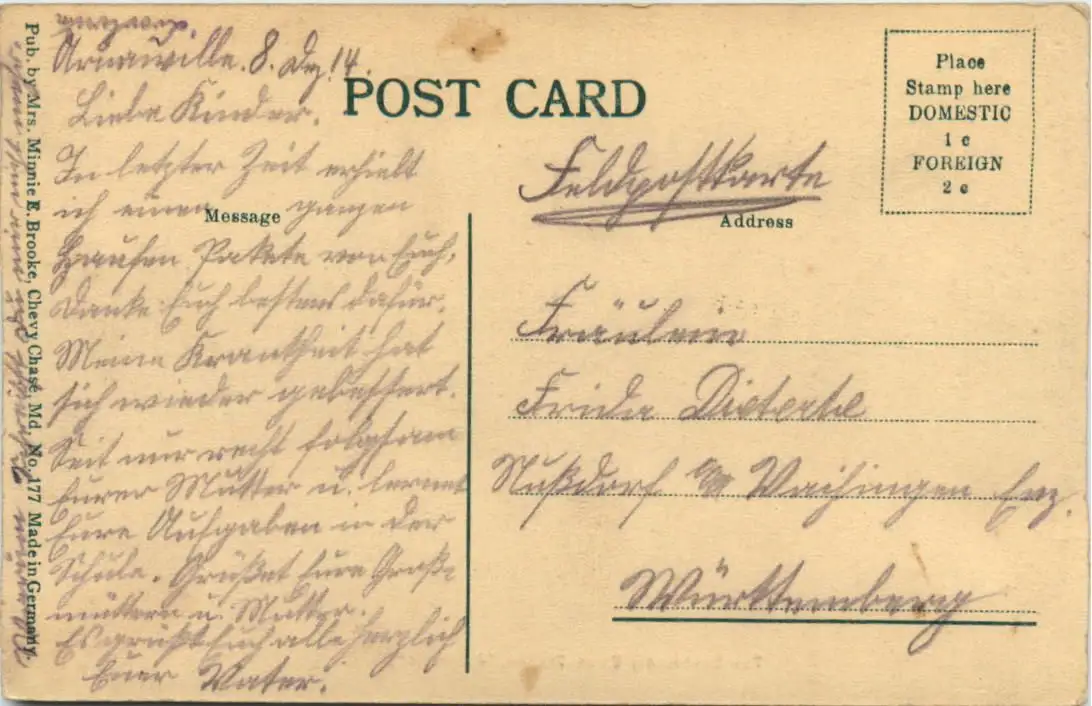 Arnaville. 8. Dez. 14.
Liebe Kinder.
In letzter Zeit erhielt
ich einen ganzen
Haufen Pakete von Euch,
Danke Euch bestens dafür.
Meine Krankheit hat
sich wieder gebessert.
Seit nur recht folgsam
Eurer Mutter u. lernet
Eure Aufgaben in der
Schule. Grüßet Eure Groß-
müttern u. Mutter.
Es grüßt Euch alle herzlich
Euer Vater.
Pub. by Mrs. Minnie E. Brooke, Chevy Chase, Md. No. 177 Made in Germany.
POST CARD
Message
Address
Place
Stamp here
DOMESTIC
1 c
FOREIGN
2 c
Feldpostkarte
Fräulein
Frida Dieterle
Nußdorf O/A Vaihingen Enz.
Württemberg